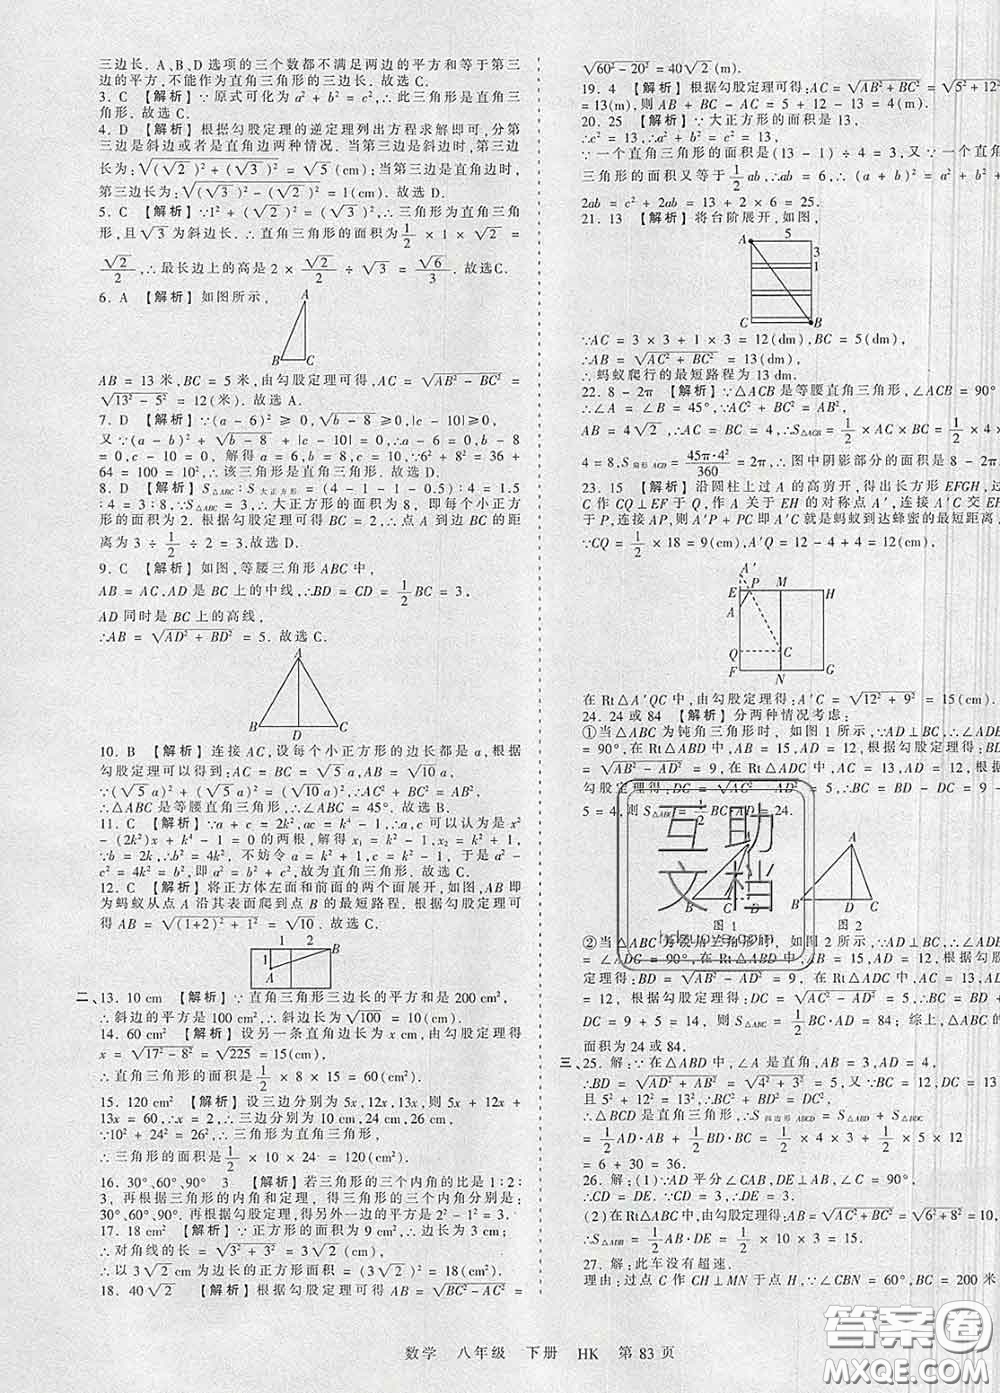 三边长. A、B、D选项的三个数都不满足两边的平方和等于第三
边的平方,不能作为直角三角形的三边长. 故选C.
3. C 【解析】∵原式可化为a² + b² = c²,∴此三角形是直角三
角形. 故选C.
4. D 【解析】根据勾股定理的逆定理列出方程求解即可,分第
三边是斜边或者是直角边两种情况. 当第三边是斜边时,第三
边长为:√((√3)² + (√2)²) = √5(cm);当第三边是直角边时,
第三边长为:√((√3)² - (√2)²) = 1(cm). 故选D.
5. C 【解析】∵1² + (√2)² = (√3)²,∴三角形为直角三角
形,且√3为斜边长,∴直角三角形的面积为1/2 × 1 × √2 =
√2/2,∴最长边上的高是2 × √2/2 ÷ √3 = √6/3. 故选C.
6. A 【解析】如图所示,
A
B C
AB = 13米,BC = 5米,由勾股定理可得,AC = √(AB² - BC²) =
√(13² - 5²) = 12(米). 故选A.
7. D 【解析】∵(a - 6)² ≥ 0,√(b - 8) ≥ 0,|c - 10| ≥ 0,
又∵(a - b)² + √(b - 8) + |c - 10| = 0,∴a - 6 = 0,b -
8 = 0,c - 10 = 0. 解得a = 6,b = 8,c = 10. ∵6² + 8² = 36 +
64 = 100 = 10²,∴该三角形是直角三角形. 故选D.
8. D 【解析】S△ABC : S大正方形 = (4 - 1 - 1 - 0.5) : 4 = 1.5
: 4 = 3 : 8,∵S△ABC = 3,∴大正方形的面积为8,即每个小正方
形的面积为2. 根据勾股定理可以求得BC = √4 = 2,∴点A到边BC的距
离为3 ÷ 1/2 ÷ 2 = 3. 故选D.
9. C 【解析】如图,等腰三角形ABC中,
AB = AC,AD是BC上的中线,∴BD = CD = 1/2 BC = 3,
AD同时是BC上的高线,
∴AB = √(AD² + BD²) = 5. 故选C.
A
B D C
10. B 【解析】连接AC,设每个小正方形的边长都是a,根据
勾股定理可以得到:AC = BC = √5 a,AB = √10 a,
∵(√5 a)² + (√5 a)² = (√10 a)²,∴AC² + BC² = AB²,
∴△ABC是等腰直角三角形,∴∠ABC = 45°. 故选B.
11. C 【解析】∵a + c = 2k²,ac = k⁴ - 1,∴a,c可以认为是x² -
(2k²)x + k⁴ - 1 = 0的两根,解得x₁ = k² - 1,x₂ = k² + 1,
∵b = 2k,∴b² = 4k²,不妨令a = k² + 1,c = k² - 1,于是a² -
c² = 4k²,即a² = b² + c²,故为直角三角形. 故选C.
12. C 【解析】将正方体左面和前面的两个面展开,如图,AB
即为蚂蚁从点A沿其表面爬到点B的最短路程. 根据勾股定理可
得AB = √((1+2)² + 1²) = √10. 故选C.
1 2 B
1
A
二、13. 10 cm 【解析】∵直角三角形三边长的平方和是200 cm²,
∴斜边的平方是100 cm²,∴斜边长为√100 = 10(cm).
14. 60 cm² 【解析】设另一条直角边长为x cm,由勾股定理得
x = √(17² - 8²) = √225 = 15(cm),
∴直角三角形的面积是1/2 × 8 × 15 = 60(cm²).
15. 120 cm² 【解析】设三边分别为5x,12x,13x,则5x + 12x +
13x = 60,∴x = 2,∴三边分别为10 cm,24 cm,26 cm.
∵10² + 24² = 26²,∴三角形为直角三角形,
∴三角形的面积为1/2 × 10 × 24 = 120(cm²).
16. 30°,60°,90° 3 【解析】若三角形的三个内角的比是1 : 2 :
3,再根据三角形的内角和定理,得三角形的三个内角分别是30°,
60°,90°. 根据勾股定理,得另外一边的平方是2² - 1² = 3.
17. 18 cm² 【解析】∵正方形的面积为9 cm²,∴边长为3 cm,
∴对角线的长 = √(3² + 3²) = 3√2(cm),
∴以3√2 cm为边长的正方形面积 = (3√2)² = 18(cm²).
18. 40√2 【解析】根据勾股定理可得AB = √(BC² - AC²) =
√(60² - 20²) = 40√2(m).
19. 4 【解析】根据勾股定理可得AB = √(AC² + BC²) = √(5² + 12²)
= 13(m),则AB + BC - AC = 5 + 12 - 13 = 4(m).
20. 25 【解析】∵大正方形的面积是13,
∴c² = 13,∴a² + b² = c² = 13,
∵一个直角三角形的面积是(13 - 1) ÷ 4 = 3,又∵一个直角
三角形的面积又等于1/2 ab,∴ab = 6,∴(a + b)² = a² +
2ab = c² + 2ab = 13 + 2 × 6 = 25.
21. 13 【解析】将台阶展开,如图,
A 5
3
1
C B
∵AC = 3 × 3 + 1 × 3 = 12(dm),BC = 5(dm),
∴AB = √(AC² + BC²) = 13(dm),
∴蚂蚁爬行的最短路程为13 dm.
22. 8 - 2π 【解析】∵△ACB是等腰直角三角形,∠ACB = 90°,
∴∠A = ∠B = 45°,∵AC² + BC² = AB²,
AB = 4√2,∴AC = BC = 4,∴S△ACB = 1/2 × AC × BC =
4 = 8,S扇形ACD = 45π·4²/360 = 2π,∴图中阴影部分的面积是8 - 2π.
23. 15 【解析】沿圆柱上过A的高剪开,得出长方形EFGH,过
C作CQ⊥EF于Q,作A关于EH的对称点A′,连接A′C交EH
于P,连接AP,则A′P + PC即A′C就是蚂蚁到达蜂蜜的最短距离,
∵CQ = 1/2 × 18 = 9(cm),A′Q = 12(cm),
A′
E P M H
A
Q C
F N G
在Rt△A′QC中,由勾股定理得:A′C = √(12² + 9²) = 15(cm).
24. 24或84 【解析】分两种情况考虑:
①当△ABC为钝角三角形时,如图1所示,∵AD⊥BD,∴∠ADB
= 90°,在Rt△ABD中,AB = 15,AD = 12,根据勾股定理得:BD =
√(AB² - AD²) = 9,在Rt△ADC中,AC = 13,AD = 12,根据
勾股定理得,DC = √(AC² - AD²) = 5,∴BC = BD - DC = 9 -
5 = 4,则S△ABC = 1/2 BC·AD = 24.
B C D
图1
A
B D C
图2
②当△ABC为锐角三角形时,如图2所示,∵AD⊥BC,∴∠ADB
= ∠ADC = 90°,在Rt△ABD中,AB = 15,AD = 12,根据勾股
定理得:BD = √(AB² - AD²) = 9,在Rt△ADC中,AC = 13,AD
= 12,根据勾股定理得:DC = √(AC² - AD²) = 5,∴BC = BD +
DC = 9 + 5 = 14,则S△ABC = 1/2 BC·AD = 84;综上,△ABC的
面积为24或84.
三、25. 解:∵在△ABD中,∠A是直角,AB = 3,AD = 4,
∴BD = √(AD² + AB²) = √(4² + 3²) = 5,
且5² + 12² = 13²,
∴△BCD是直角三角形,∴S四边形ABCD = S△ABD + S△DBC
= 1/2 AD·AB + 1/2 BD·BC = 1/2 × 4 × 3 + 1/2 × 5 × 12
= 6 + 30 = 36.
26. 解:(1)∵AD平分∠CAB,DE⊥AB,∠C = 90°,
∴CD = DE. ∵CD = 3,∴DE = 3.
(2)在Rt△ABC中,由勾股定理得:AB = √(AC² + BC²) = √(6² + 8²) = 10,
∴S△ADB = 1/2 AB·DE = 1/2 × 10 × 3 = 15.
27. 解:此车没有超速.
理由:过点C作CH⊥MN于点H,∵∠CBN = 60°,BC = 200米
数学 八年级 下册 HK 第83页
互助
文档
答案圈
MXQE.COM